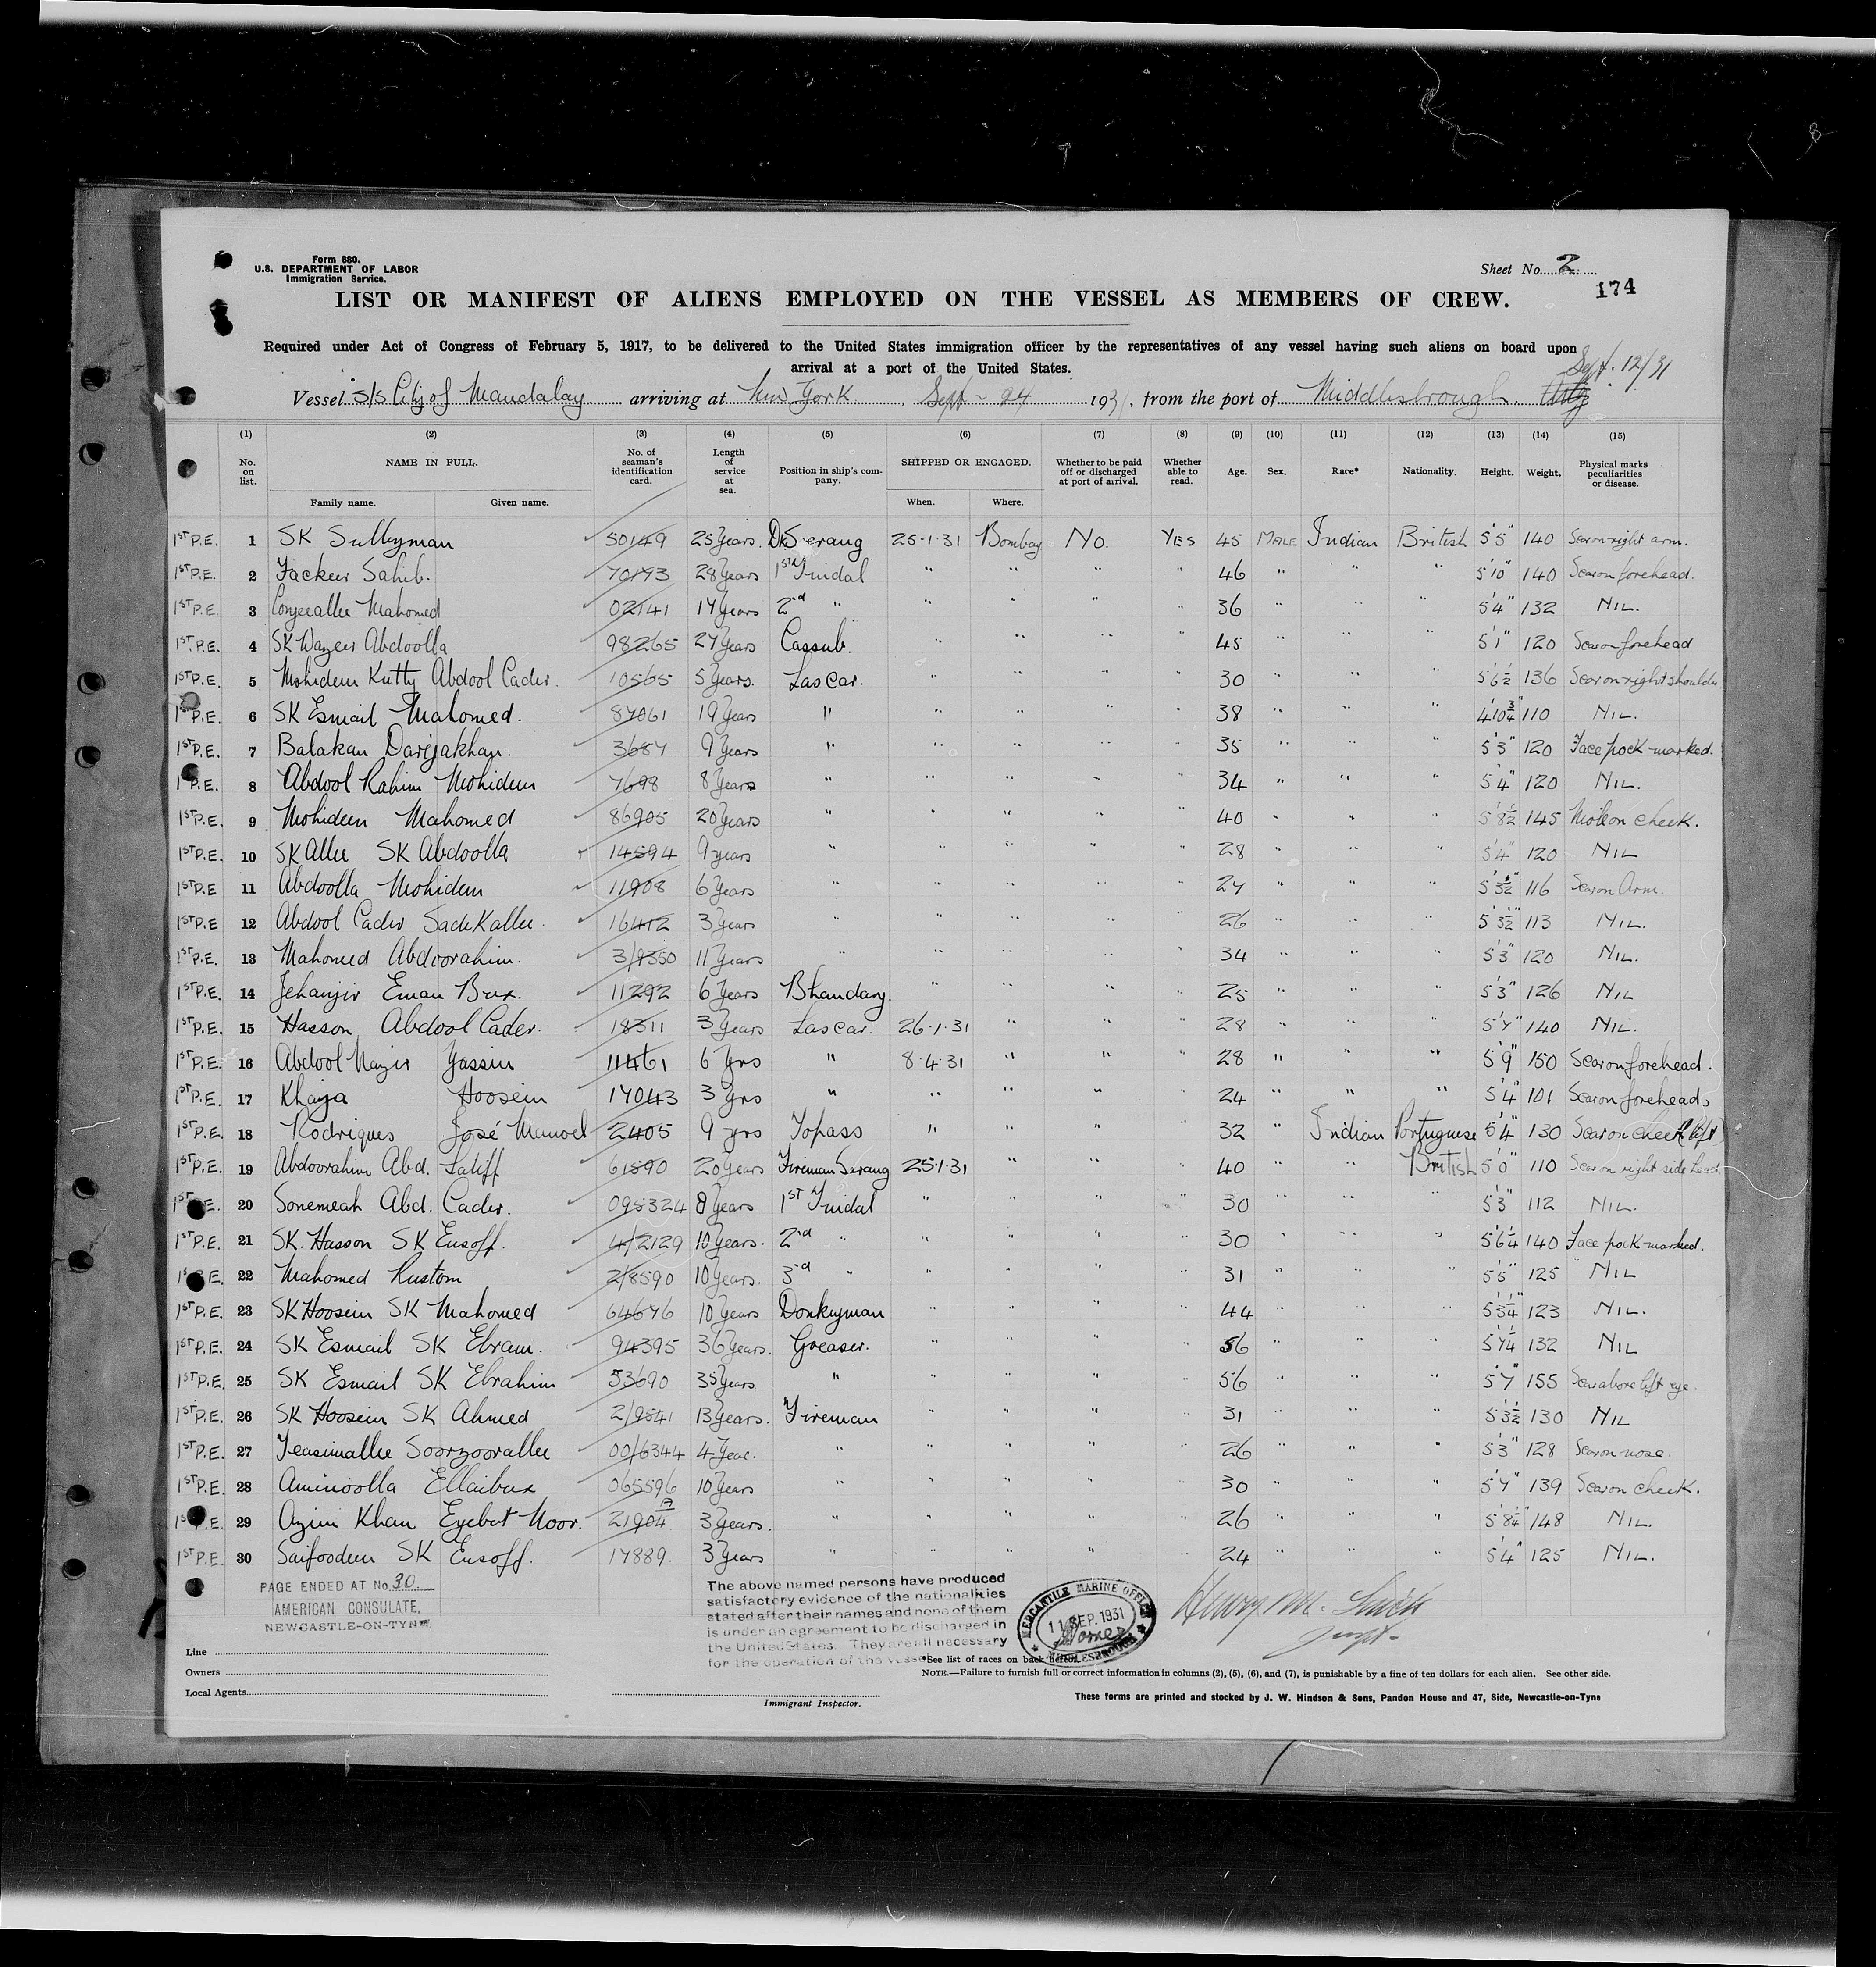 Form 680.
U.S. DEPARTMENT OF LABOR
Immigration Service.
Sheet No. 2
174
LIST OR MANIFEST OF ALIENS EMPLOYED ON THE VESSEL AS MEMBERS OF CREW.
Required under Act of Congress of February 5, 1917, to be delivered to the United States immigration officer by the representatives of any vessel having such aliens on board upon
arrival at a port of the United States.
Sept. 12/31
Vessel S/S City of Mandalay arriving at New York, Sept - 24 1931, from the port of Middlesbrough.
(1) (2) (3) (4) (5) (6) (7) (8) (9) (10) (11) (12) (13) (14) (15)
No. on list. NAME IN FULL. Family name. Given name. No. of seaman's identification card. Length of service at sea. Position in ship's company. SHIPPED OR ENGAGED. When. Where. Whether to be paid off or discharged at port of arrival. Whether able to read. Age. Sex. Race* Nationality. Height. Weight. Physical marks peculiarities or disease.
1st P.E. 1 SK Sulleyman 50149 25 Years. Dk Serang 25.1.31 Bombay No. YES 45 MALE Indian British 5'5" 140 Scar on right arm.
1st P.E. 2 Fackeer Sahib. 70193 28 Years 1st Tindal " " " " 46 " " " 5'10" 140 Scar on forehead.
1st P.E. 3 Mahomed 02141 17 Years 2nd " " " " " 36 " " " 5'4" 132 NIL.
1st P.E. 4 SK Wazeer Abdoolla 98265 27 Years Cassub. " " " " 45 " " " 5'1" 120 Scar on forehead
1st P.E. 5 Mohideen Kutty Abdool Cader. 10565 5 Years. Lascar. " " " " 30 " " " 5'6½ 136 Scar on right shoulder
1st P.E. 6 SK Esmail Mahomed. 87061 19 Years " " " " " 38 " " " 4'10¾" 110 NIL.
1st P.E. 7 Balakan Darjjakhan. 3687 9 Years " " " " " 35 " " " 5'3" 120 Face pock-marked.
1st P.E. 8 Abdool Rahim Mohideen 7698 8 Years " " " " " 34 " " " 5'4" 120 NIL.
1st P.E. 9 Mohideen Mahomed 86905 20 Years " " " " " 40 " " " 5'8½ 145 Mole on cheek.
1st P.E. 10 SK Allee SK Abdoolla 14594 9 years " " " " " 28 " " " 5'4" 120 NIL
1st P.E 11 Abdoolla Mohideen 11908 6 Years " " " " " 27 " " " 5'3½" 116 Scar on Arm.
1st P.E 12 Abdool Cader Sadekallee. 16412 3 Years " " " " " 26 " " " 5'3½" 113 NIL.
1st P.E. 13 Mahomed Abdoorahim. 3/9350 11 Years " " " " " 34 " " " 5'3" 120 NIL.
1st P.E. 14 Jehangir Eman Bux. 11292 6 Years Bhandary. " " " " 25 " " " 5'3" 126 NIL
1st P.E. 15 Hasson Abdool Cader. 18311 3 Years Lascar. 26.1.31 " " " 28 " " " 5'7" 140 NIL.
1st P.E. 16 Abdool Yassin 11461 6 Yrs " 8.4.31 " " " 28 " " " 5'9" 150 Scar on forehead.
1st P.E. 17 Khaja Hoosein 17043 3 yrs " " " " " 24 " " " 5'4" 101 Scar on forehead
1st P.E. 18 Rodriques José Manoel 2405 9 yrs Topass " " " " 32 " Indian Portuguese 5'4" 130 Scar on cheek (left)
1st P.E. 19 Abdoorahim Abd. Latiff 61590 20 Years Fireman Serang 25.1.31 " " " 40 " " British 5'0" 110 Scar on right side head
1st P.E. 20 Sonemeah Abd. Cader. 095324 8 years 1st Tindal " " " " 30 " " " 5'3" 112 NIL.
1st P.E. 21 SK. Hasson SK Eusoff. 4/2129 10 Years. 2nd " " " " " 30 " " " 5'6¼ 140 Face pock-marked.
1st P.E. 22 Mahomed Rustom 2/8590 10 Years. 3rd " " " " " 31 " " " 5'5" 125 NIL
1st P.E. 23 SK Hoosein SK Mahomed 64676 10 Years Donkeyman " " " " 44 " " " 5'3¼" 123 NIL.
1st P.E. 24 SK Esmail SK Ebram. 94395 36 Years. Greaser. " " " " 56 " " " 5'7¼ 132 NIL
1st P.E. 25 SK Esmail SK Ebrahim 53690 35 Years " " " " " 56 " " " 5'7" 155 Scar above left eye.
1st P.E. 26 SK Hoosein SK Ahmed 2/9541 13 Years. Fireman " " " " 31 " " " 5'3½ 130 NIL
1st P.E. 27 Yeasimallee Soorzoorallee 00/6344 4 Year. " " " " " 26 " " " 5'3" 128 Scar on nose.
1st P.E. 28 Aminoolla Ellaibux 065596 10 Years " " " " " 30 " " " 5'7" 139 Scar on cheek.
1st P.E. 29 Azim Khan Eyebut Noor. 21904 3 Years. " " " " " 26 " " " 5'8¼" 148 NIL.
1st P.E. 30 Saifoodeen SK Eusoff. 17889. 3 Years " " " " " 24 " " " 5'4" 125 NIL.
PAGE ENDED AT No. 30.
AMERICAN CONSULATE,
NEWCASTLE-ON-TYNE
The above named persons have produced
satisfactory evidence of the nationalities
stated after their names and none of them
is under an agreement to be discharged in
the United States. They are all necessary
for the operation of the vessel
MERCANTILE MARINE OFFICE
11 SEP. 1931
MIDDLESBROUGH
Henry M. Smith
Supt.
Line
Owners
Local Agents
Immigrant Inspector.
*See list of races on back hereof.
NOTE.—Failure to furnish full or correct information in columns (2), (5), (6), and (7), is punishable by a fine of ten dollars for each alien. See other side.
These forms are printed and stocked by J. W. Hindson & Sons, Pandon House and 47, Side, Newcastle-on-Tyne